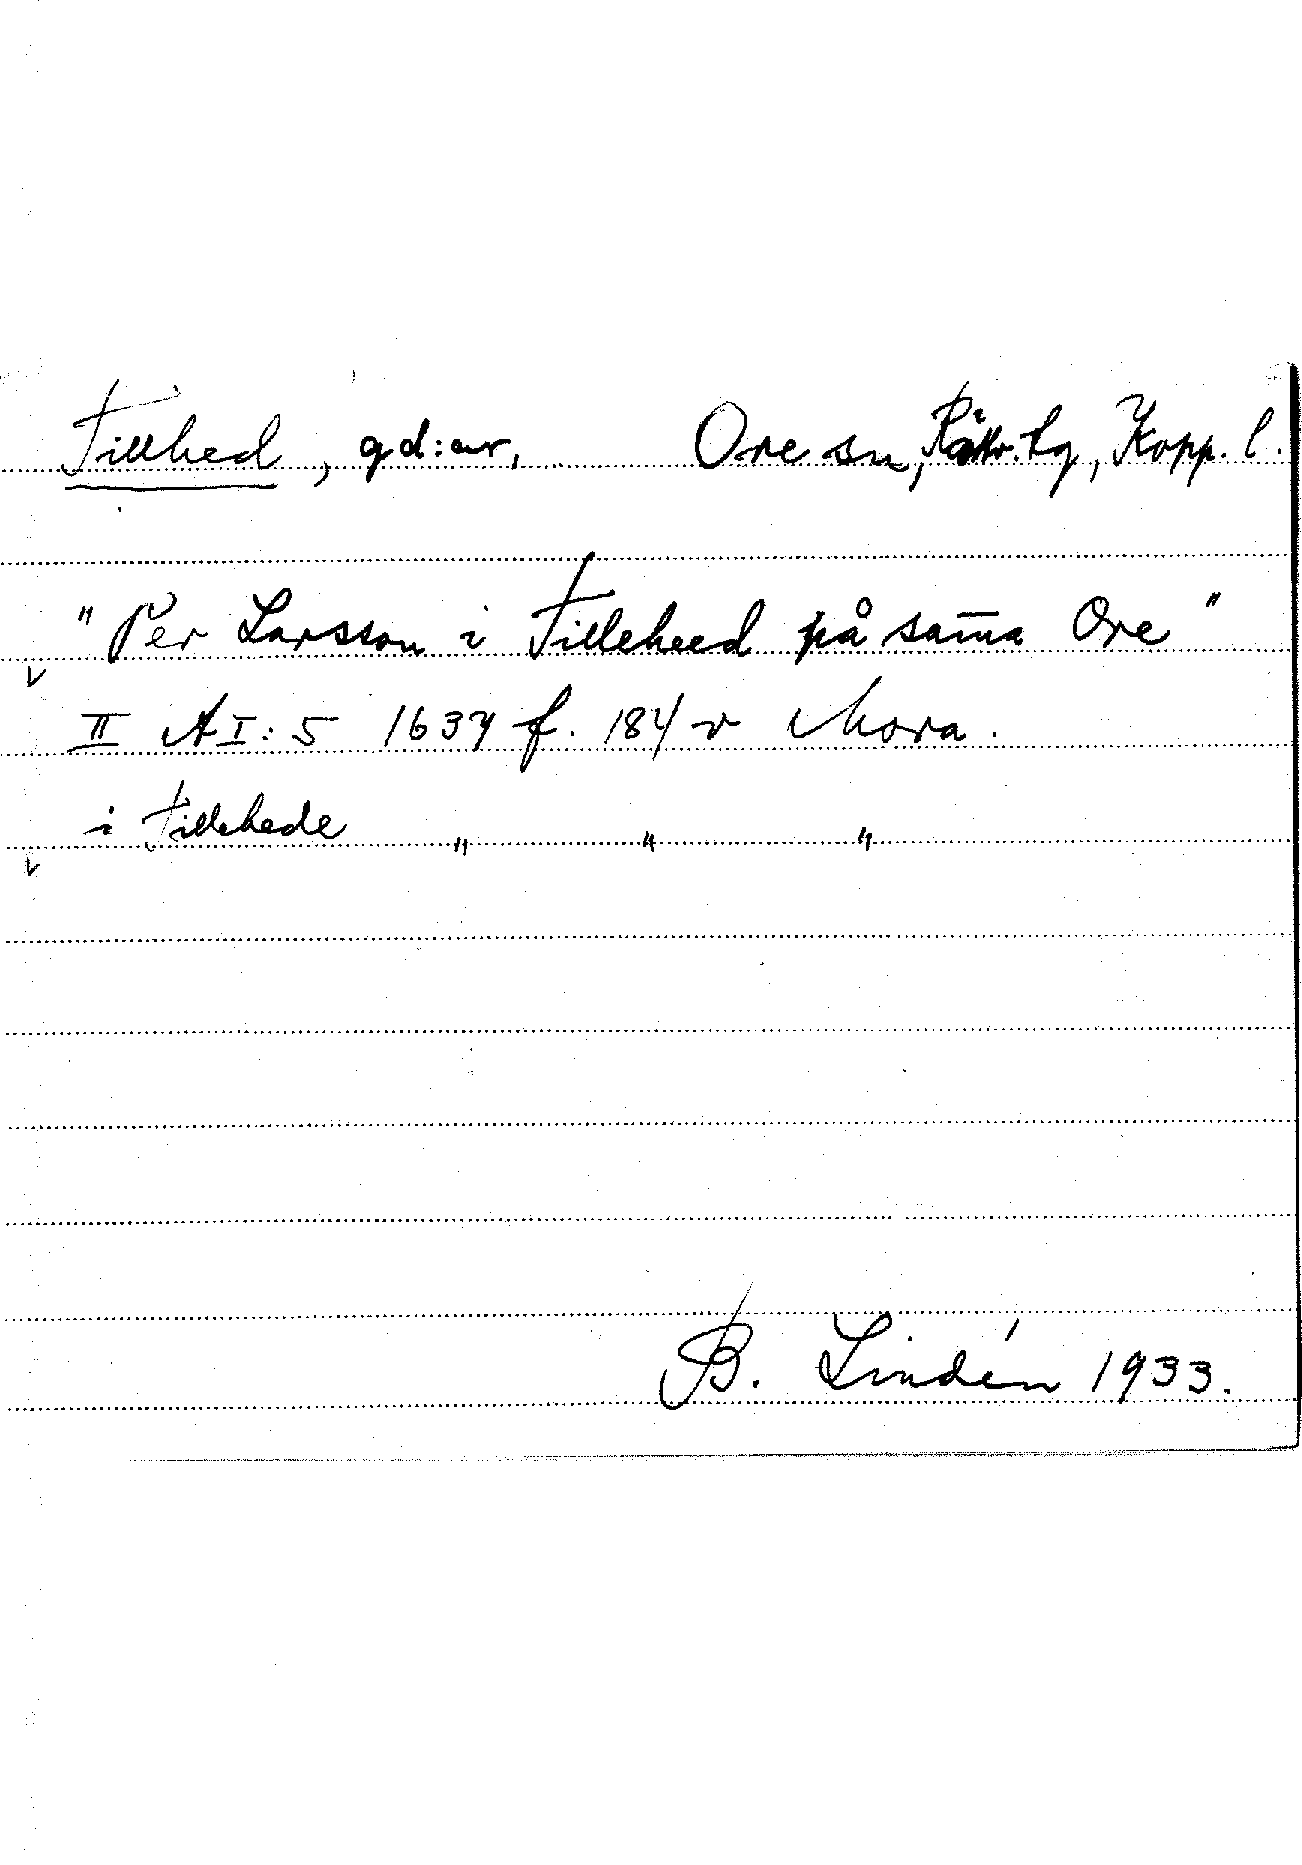 Tillhed, gd:ar, Ore sn, Rättv. tg, Kopp. l.
"Per Larsson i Tilleheed på sam̄a Ore"
II A I: 5 1637 f. 184 v Mora.
i Tillehede " " "
B. Lindén 1933.